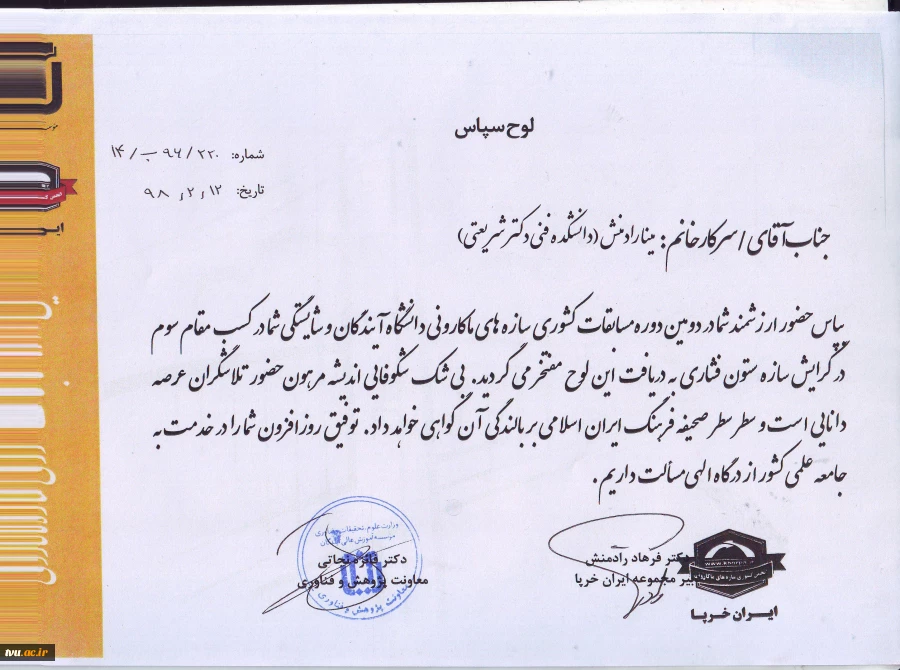 لوح سپاس
شماره: ۲۲۰ / ۹۶ ب / ۱۴
تاریخ: ۱۲ ، ۲ ، ۹۸
جناب آقای / سرکار خانم: مینا رادمنش (دانشکده فنی دکتر شریعتی)
سپاس حضور ارزشمند شما در دومین دوره مسابقات کشوری سازه های ماکارونی دانشگاه آیندگان و شایستگی شما در کسب مقام سوم
در گرایش سازه ستون فشاری به دریافت این لوح مفتخر می گردید. بی شک شکوفایی اندیشه مرهون حضور تلاشگران عرصه
دانایی است و سطر سطر صحیفه فرهنگ ایران اسلامی بر بالندگی آن گواهی خواهد داد. توفیق روزافزون شما را در خدمت به
جامعه علمی کشور از درگاه الهی مسالت داریم.
دکتر فرهاد رادمنش
دبیر مجموعه ایران خرپا
ایران خرپا
دکتر فائزه نجاتی
معاونت پژوهش و فناوری
وزارت علوم، تحقیقات و فناوری
موسسه آموزش عالی
معاونت پژوهش و فناوری
tvu.ac.ir